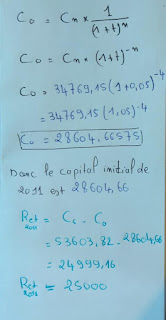 C₀ = Cn × 1/(1+t)ⁿ
C₀ = Cn × (1+t)⁻ⁿ
C₀ = 34769,15 (1+0,05)⁻⁴
= 34769,15 (1,05)⁻⁴
C₀ = 28604,66575
Donc le capital initial de
2011 est 28604,66
Ret 2011 = Cc - C₀
= 53603,82 - 28604,66
= 24999,16
Ret 2011 ≈ 25000